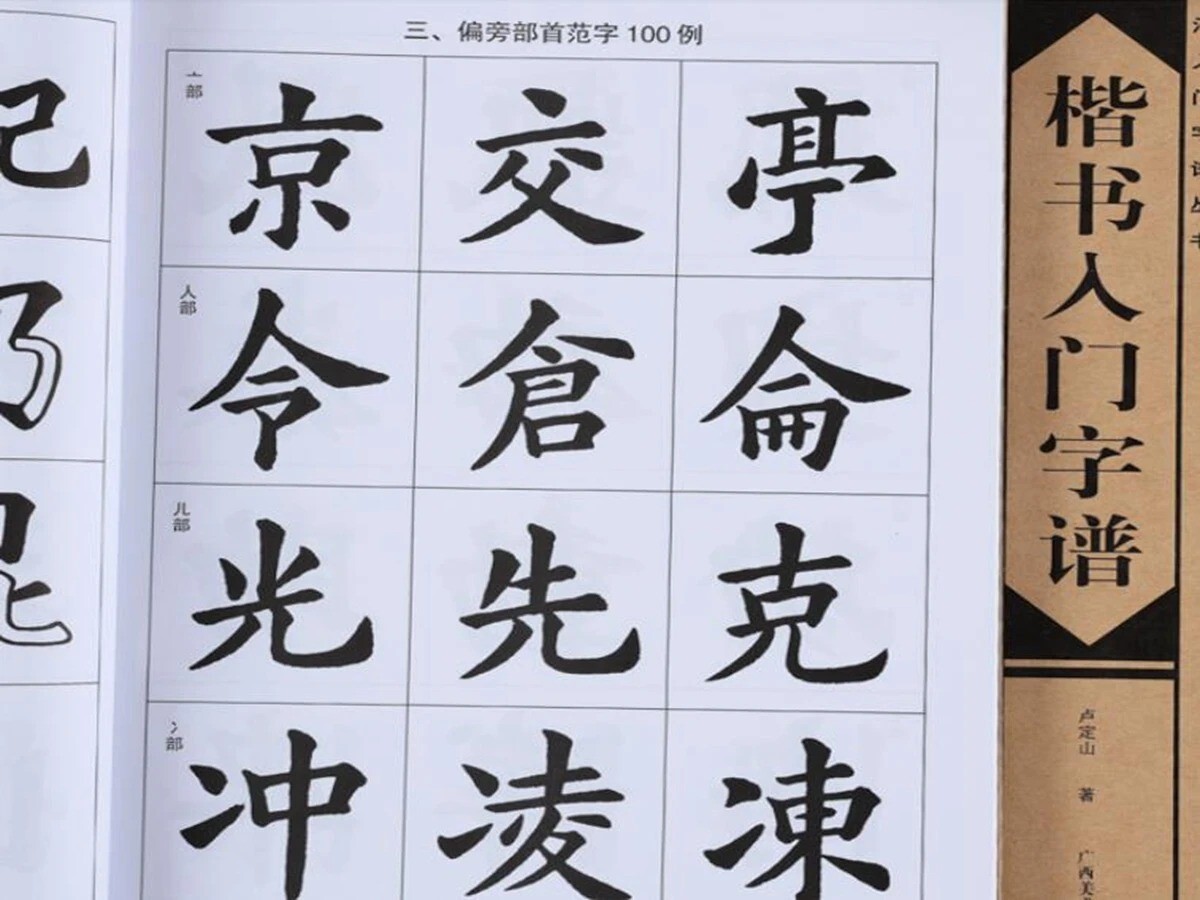 三、偏旁部首范字 100 例
亠部
京 交 亭
人部
令 倉 侖
儿部
光 先 克
冫部
冲 凌 凍
楷书入门字谱
卢定山 著
广西美